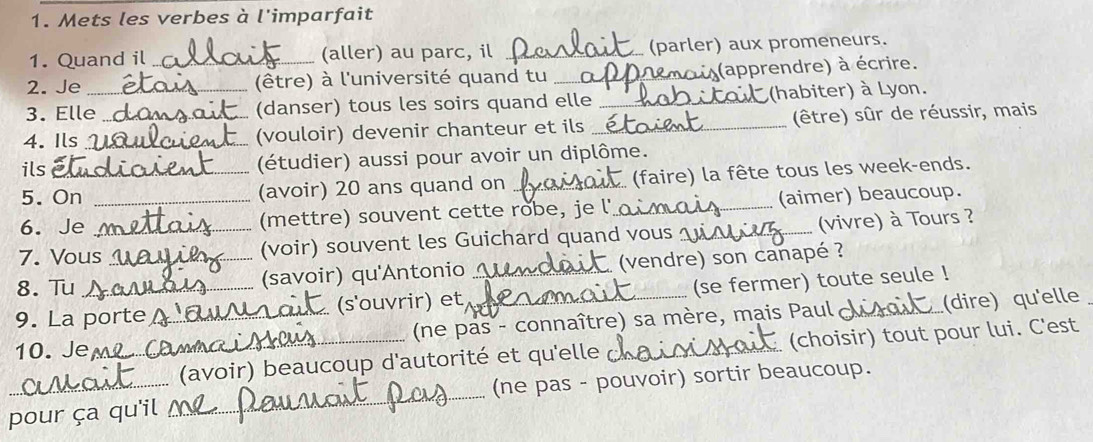 1. Mets les verbes à l'imparfait
1. Quand il allait (aller) au parc, il parlait (parler) aux promeneurs.
2. Je étais (être) à l'université quand tu apprenais (apprendre) à écrire.
3. Elle dansait (danser) tous les soirs quand elle habitait (habiter) à Lyon.
4. Ils voulaient (vouloir) devenir chanteur et ils étaient (être) sûr de réussir, mais
ils étudiaient (étudier) aussi pour avoir un diplôme.
5. On (avoir) 20 ans quand on faisait (faire) la fête tous les week-ends.
6. Je mettais (mettre) souvent cette robe, je l'aimais (aimer) beaucoup.
7. Vous voyiez (voir) souvent les Guichard quand vous viviez (vivre) à Tours ?
8. Tu savais (savoir) qu'Antonio vendait (vendre) son canapé ?
9. La porte s'ouvrait (s'ouvrir) et se fermait (se fermer) toute seule !
10. Je ne connaissais (ne pas - connaître) sa mère, mais Paul disait (dire) qu'elle
avait (avoir) beaucoup d'autorité et qu'elle choisissait (choisir) tout pour lui. C'est
pour ça qu'il ne pouvait pas (ne pas - pouvoir) sortir beaucoup.